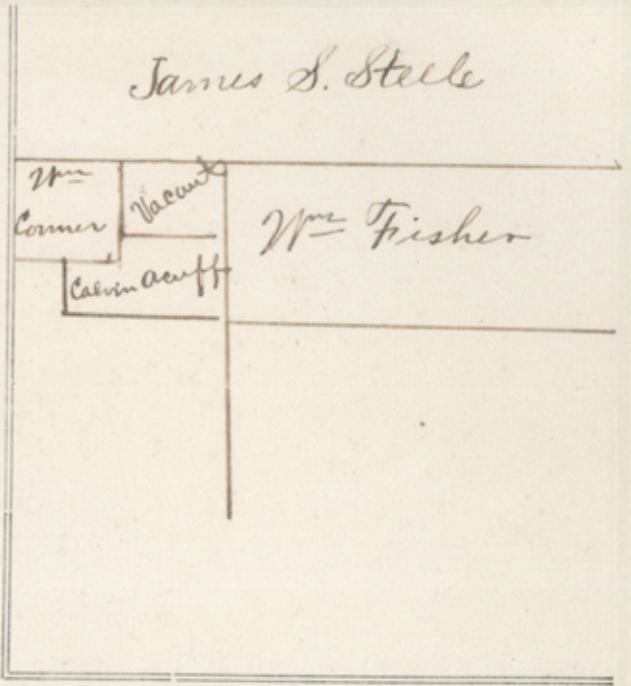 James S. Steele
Wm
Conner
Vacant
Wm Fisher
Calvin Acuff